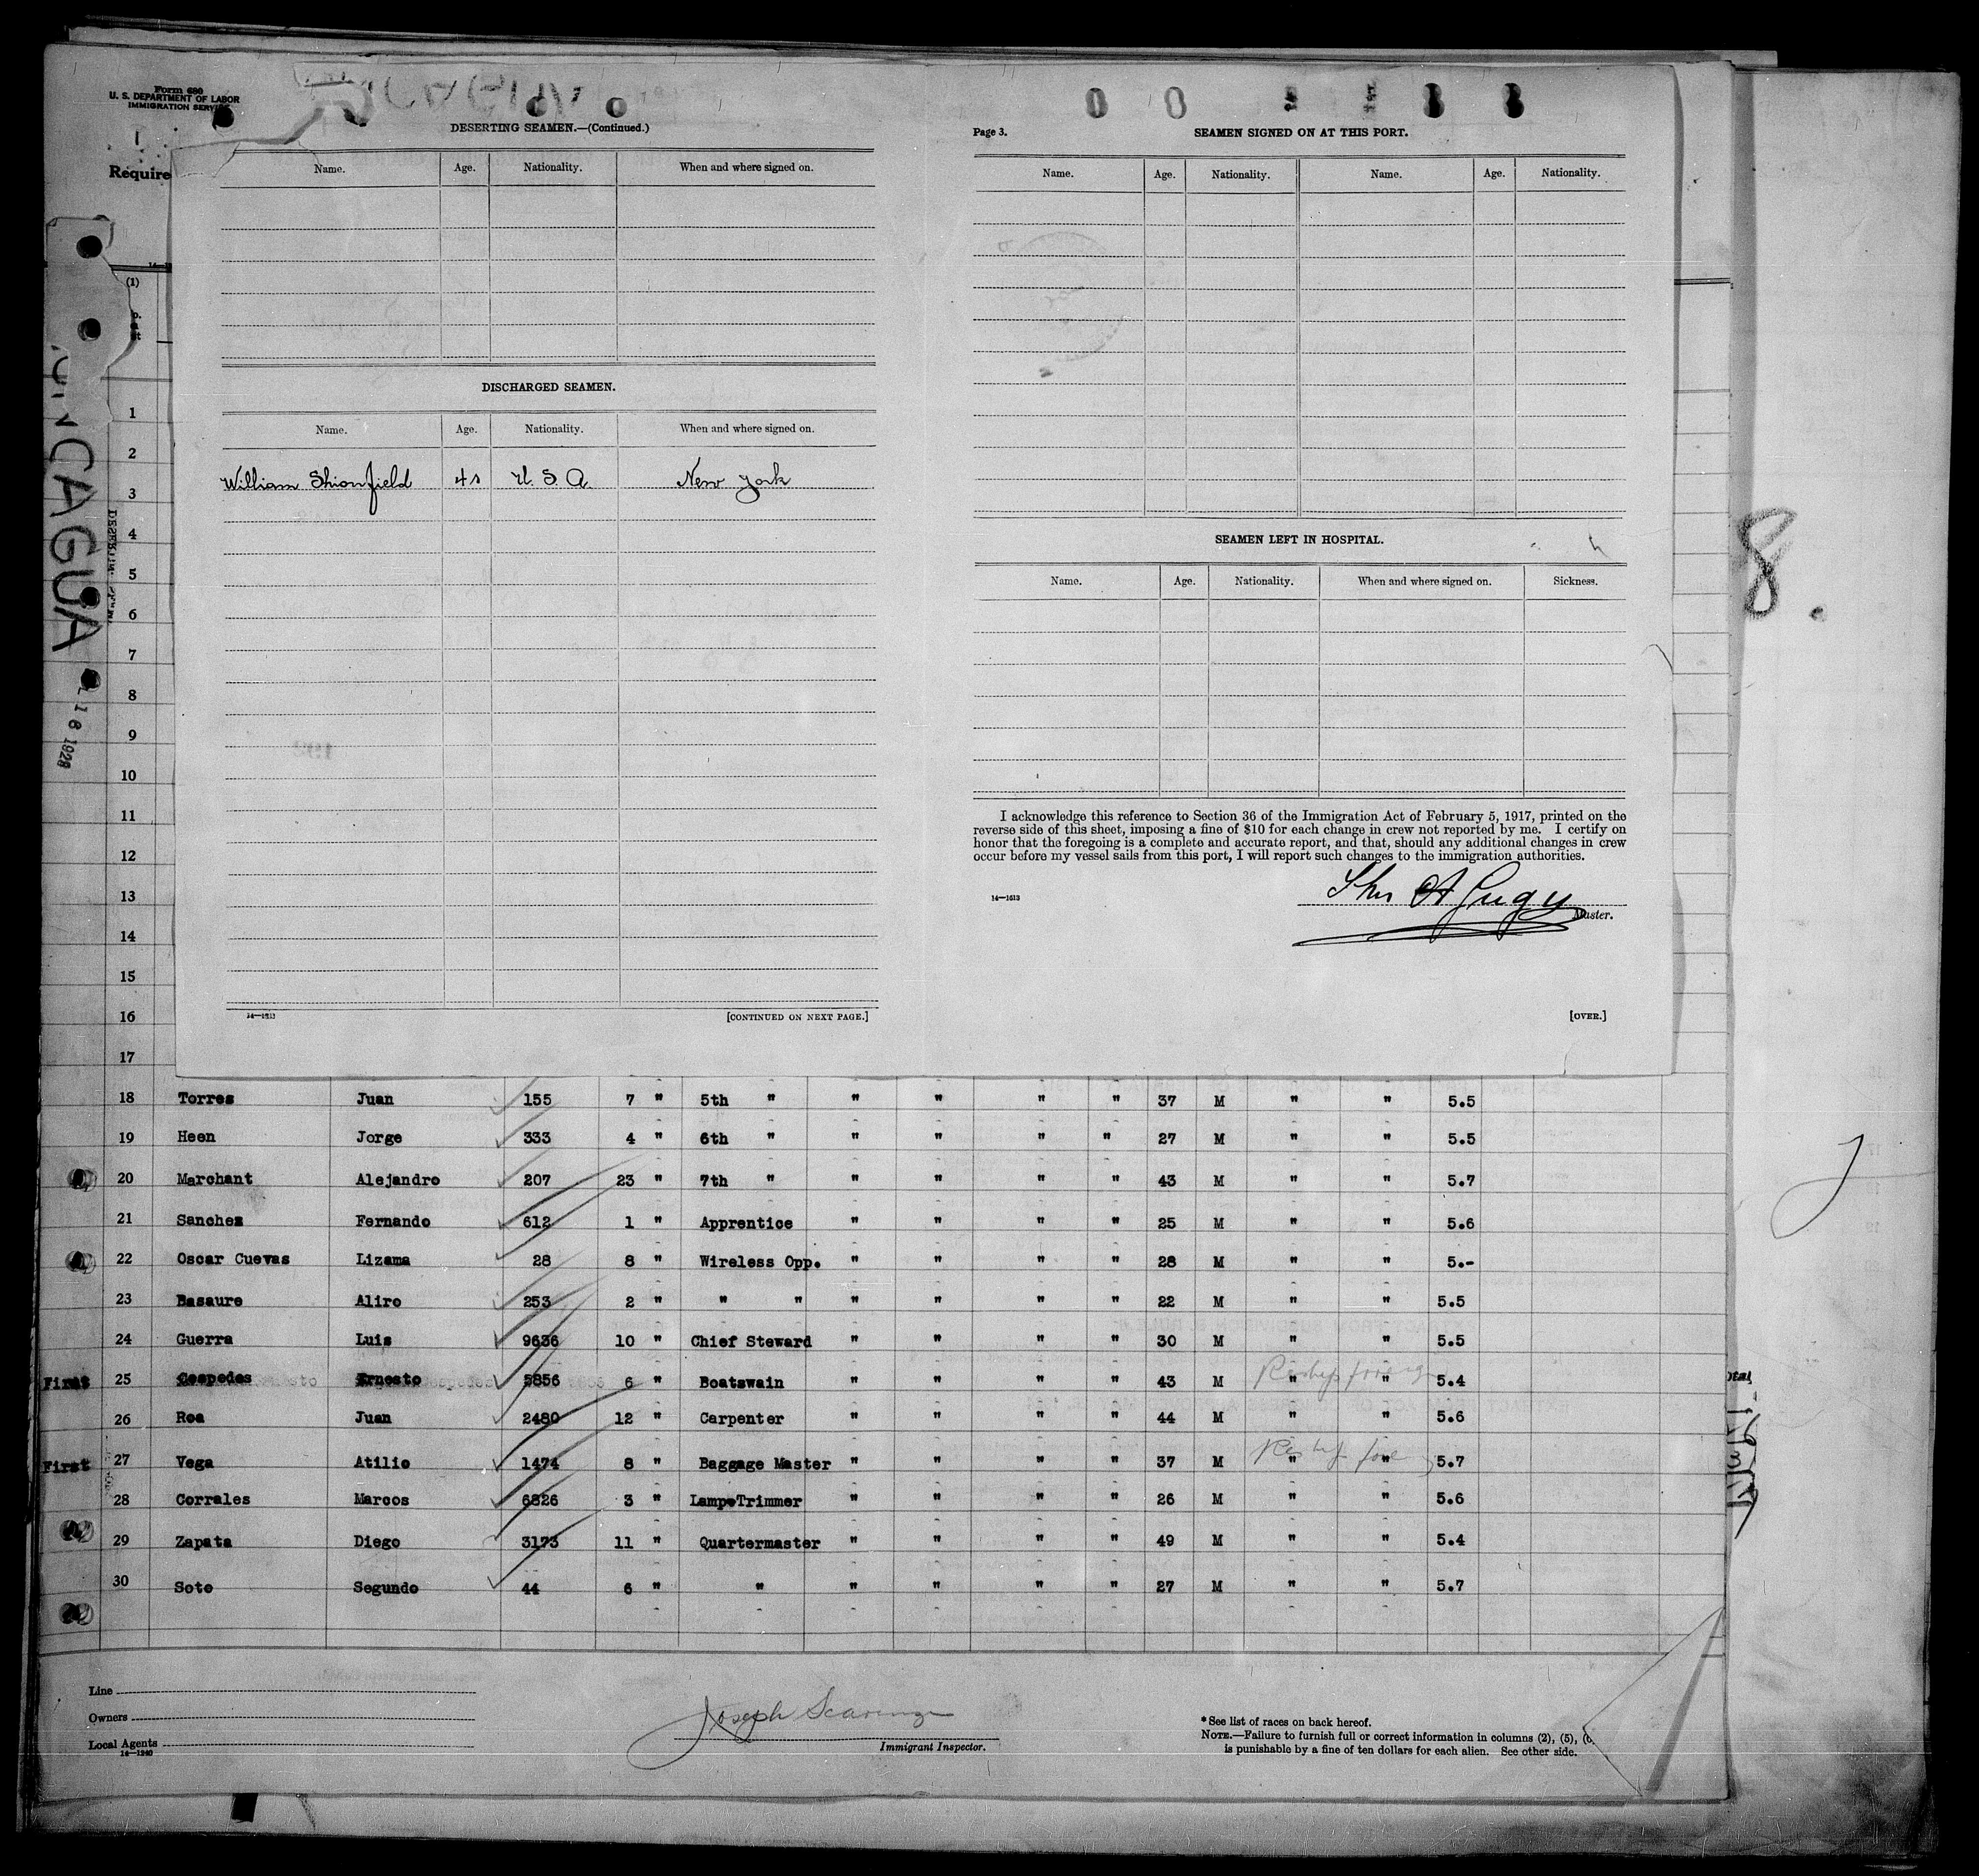 Form 680
U. S. DEPARTMENT OF LABOR
IMMIGRATION SERVICE
Require
DESERTING SEAMEN.—(Continued.)
Name. Age. Nationality. When and where signed on.
DISCHARGED SEAMEN.
Name. Age. Nationality. When and where signed on.
William Shionfield U. S. A. New York
14—1613
[CONTINUED ON NEXT PAGE.]
Page 3.
SEAMEN SIGNED ON AT THIS PORT.
Name. Age. Nationality. Name. Age. Nationality.
SEAMEN LEFT IN HOSPITAL.
Name. Age. Nationality. When and where signed on. Sickness.
I acknowledge this reference to Section 36 of the Immigration Act of February 5, 1917, printed on the
reverse side of this sheet, imposing a fine of $10 for each change in crew not reported by me. I certify on
honor that the foregoing is a complete and accurate report, and that, should any additional changes in crew
occur before my vessel sails from this port, I will report such changes to the immigration authorities.
14—1613
Master.
[OVER.]
CAGUA
18 1928
8.
(1)
1
2
3
4
5
6
7
8
9
10
11
12
13
14
15
16
17
18 Torres Juan 155 7 " 5th " " " " " 37 M " " 5.5
19 Heen Jorge 333 4 " 6th " " " " " 27 M " " 5.5
20 Marchant Alejandro 207 23 " 7th " " " " " 43 M " " 5.7
21 Sanchez Fernando 612 1 " Apprentice " " " " 25 M " " 5.6
22 Oscar Cuevas Lizama 28 8 " Wireless Opp. " " " " 28 M " " 5.-
23 Basaure Aliro 253 2 " " " " " " " 22 M " " 5.5
24 Guerra Luis 9636 10 " Chief Steward " " " " 30 M " " 5.5
First 25 Cespedes Ernesto 5856 6 " Boatswain " " " " 43 M " " 5.4
26 Roa Juan 2480 12 " Carpenter " " " " 44 M " " 5.6
First 27 Vega Atilio 1474 8 " Baggage Master " " " " 37 M " " 5.7
28 Corrales Marcos 6826 3 " Lamp Trimmer " " " " 26 M " " 5.6
29 Zapata Diego 3173 11 " Quartermaster " " " " 49 M " " 5.4
30 Soto Segundo 44 6 " " " " " " 27 M " " 5.7
Line
Owners
Local Agents
14—1240
Joseph
Immigrant Inspector.
* See list of races on back hereof.
NOTE.—Failure to furnish full or correct information in columns (2), (5),
is punishable by a fine of ten dollars for each alien. See other side.